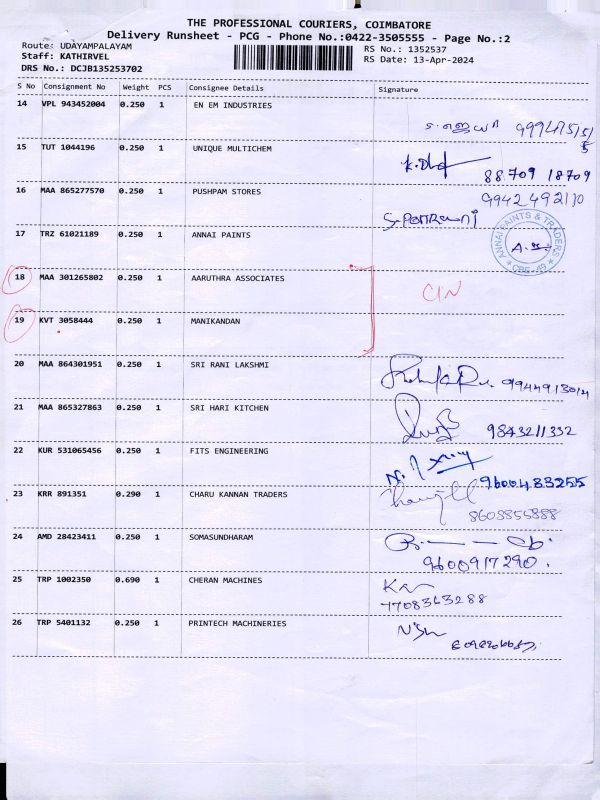 THE PROFESSIONAL COURIERS, COIMBATORE
Delivery Runsheet - PCG - Phone No.:0422-3505555 - Page No.:2
Route: UDAYAMPALAYAM RS No.: 1352537
Staff: KATHIRVEL RS Date: 13-Apr-2024
DRS No.: DCJB135253702
S No Consignment No Weight PCS Consignee Details Signature
14 VPL 943452004 0.250 1 EN EM INDUSTRIES
15 TUT 1044196 0.250 1 UNIQUE MULTICHEM
88.709 18709
16 MAA 865277570 0.250 1 PUSHPAM STORES 9942492110
17 TRZ 61021189 0.250 1 ANNAI PAINTS
ANNAI PAINTS & TRADERS
18 MAA 301265802 0.250 1 AARUTHRA ASSOCIATES
CIN
19 KVT 3058444 0.250 1 MANIKANDAN
20 MAA 864301951 0.250 1 SRI RANI LAKSHMI
21 MAA 865327863 0.250 1 SRI HARI KITCHEN
9843211332
22 KUR 531065456 0.250 1 FITS ENGINEERING
9600483255
23 KRR 891351 0.290 1 CHARU KANNAN TRADERS
24 AMD 28423411 0.250 1 SOMASUNDHARAM
9600917290.
25 TRP 1002350 0.690 1 CHERAN MACHINES
7708363288
26 TRP 5401132 0.250 1 PRINTECH MACHINERIES